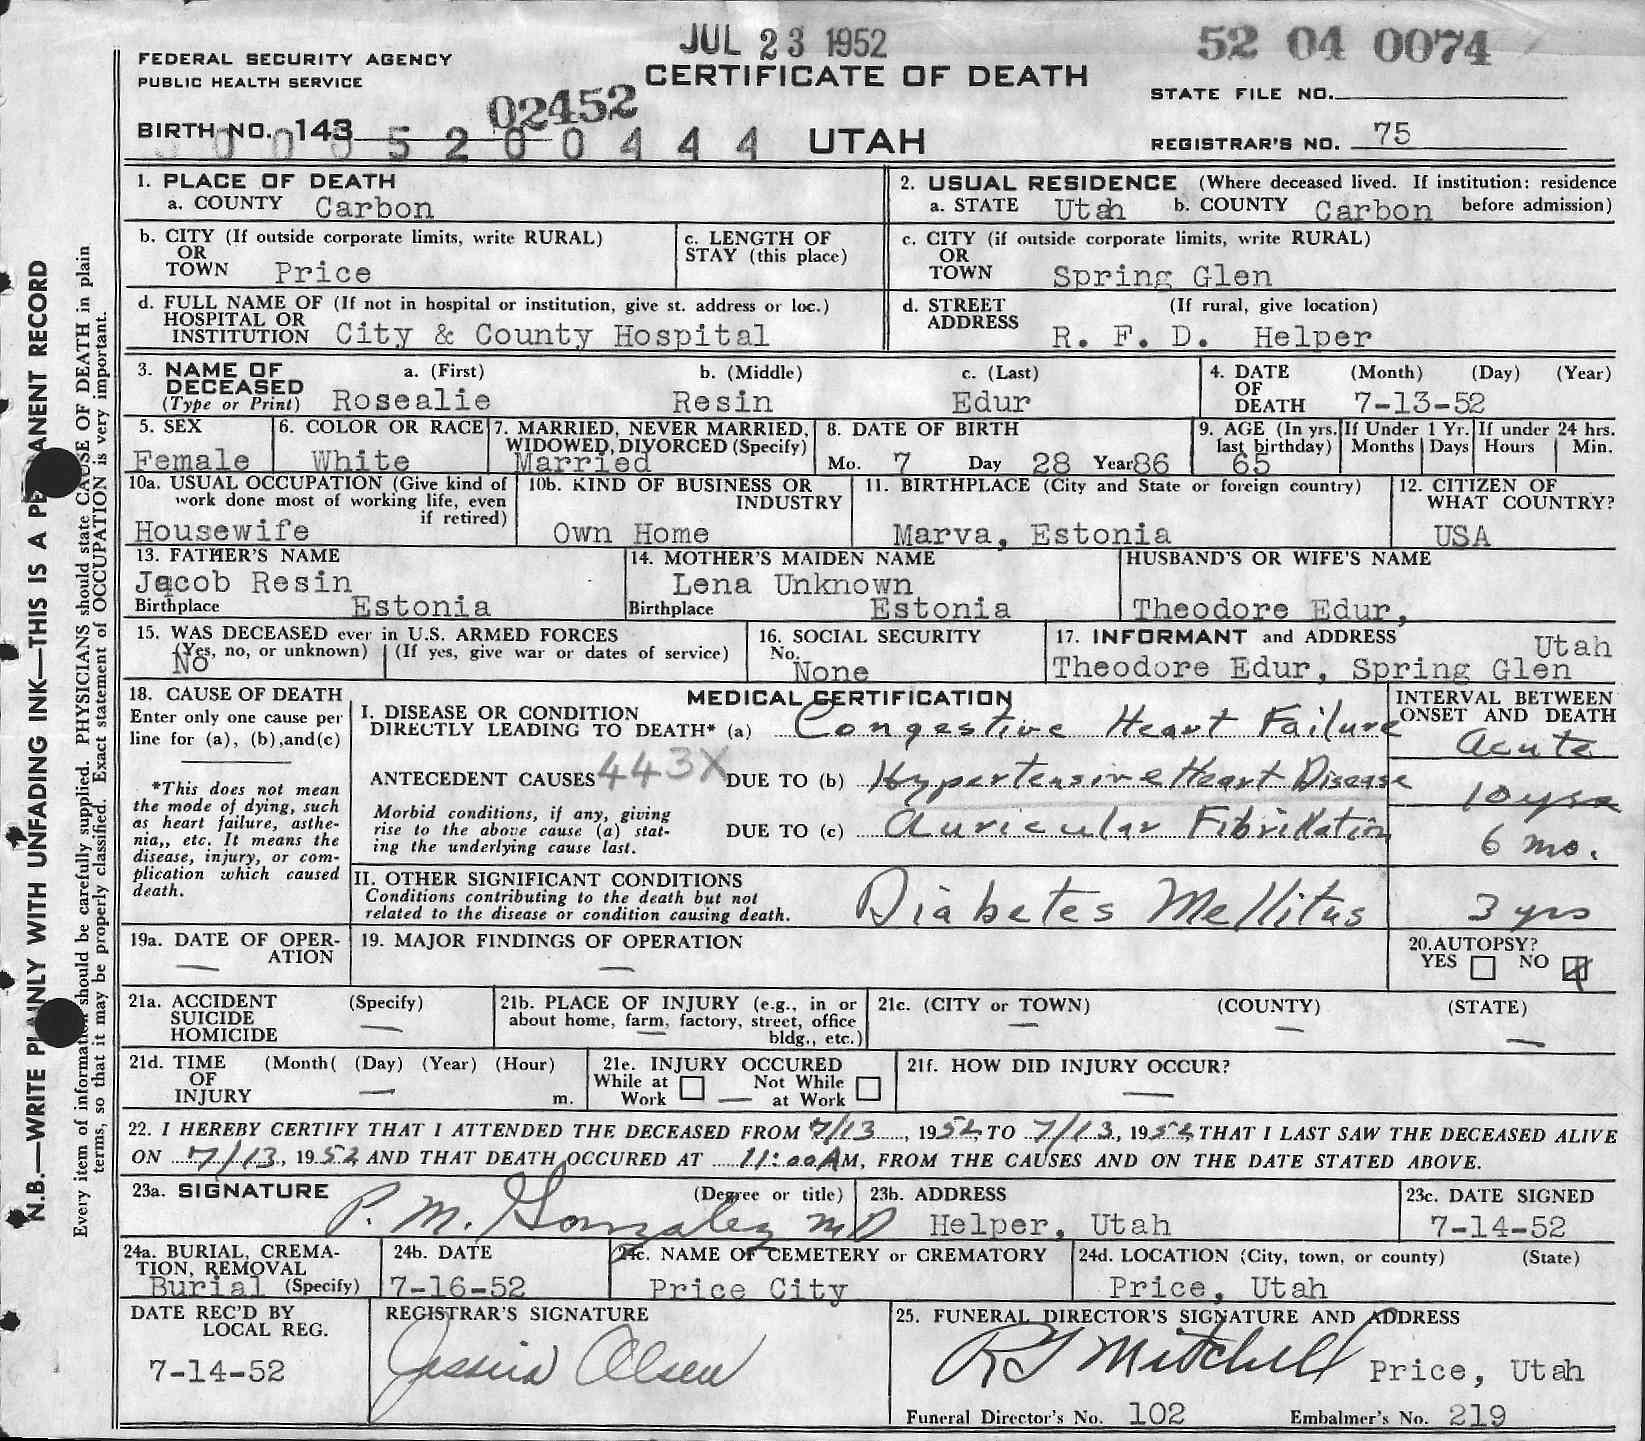 JUL 23 1952
52 04 0074
FEDERAL SECURITY AGENCY
PUBLIC HEALTH SERVICE
CERTIFICATE OF DEATH
STATE FILE NO.
02452
BIRTH NO. 143
5200444
UTAH
REGISTRAR'S NO. 75
1. PLACE OF DEATH
a. COUNTY Carbon
2. USUAL RESIDENCE (Where deceased lived. If institution: residence before admission)
a. STATE Utah b. COUNTY Carbon
b. CITY (If outside corporate limits, write RURAL)
OR
TOWN Price
c. LENGTH OF
STAY (this place)
c. CITY (if outside corporate limits, write RURAL)
OR
TOWN Spring Glen
d. FULL NAME OF (If not in hospital or institution, give st. address or loc.)
HOSPITAL OR
INSTITUTION City & County Hospital
d. STREET (If rural, give location)
ADDRESS R. F. D. Helper
3. NAME OF a. (First) b. (Middle) c. (Last)
DECEASED
(Type or Print) Rosealie Resin Edur
4. DATE (Month) (Day) (Year)
OF
DEATH 7-13-52
5. SEX
Female
6. COLOR OR RACE
White
7. MARRIED, NEVER MARRIED,
WIDOWED, DIVORCED (Specify)
Married
8. DATE OF BIRTH
Mo. 7 Day 28 Year 86
9. AGE (In yrs.
last birthday)
65
If Under 1 Yr.
Months Days
If under 24 hrs.
Hours Min.
10a. USUAL OCCUPATION (Give kind of
work done most of working life, even
if retired)
Housewife
10b. KIND OF BUSINESS OR
INDUSTRY
Own Home
11. BIRTHPLACE (City and State or foreign country)
Marva, Estonia
12. CITIZEN OF
WHAT COUNTRY?
USA
13. FATHER'S NAME
Jacob Resin
Birthplace Estonia
14. MOTHER'S MAIDEN NAME
Lena Unknown
Birthplace Estonia
HUSBAND'S OR WIFE'S NAME
Theodore Edur,
15. WAS DECEASED ever in U.S. ARMED FORCES
(Yes, no, or unknown) (If yes, give war or dates of service)
No
16. SOCIAL SECURITY
No.
None
17. INFORMANT and ADDRESS Utah
Theodore Edur, Spring Glen
18. CAUSE OF DEATH
Enter only one cause per
line for (a), (b),and(c)
*This does not mean
the mode of dying, such
as heart failure, asthe-
nia,, etc. It means the
disease, injury, or com-
plication which caused
death.
MEDICAL CERTIFICATION
I. DISEASE OR CONDITION
DIRECTLY LEADING TO DEATH* (a) Congestive Heart Failure
ANTECEDENT CAUSES 443X DUE TO (b) Hypertensive Heart Disease
Morbid conditions, if any, giving
rise to the above cause (a) stat-
ing the underlying cause last.
DUE TO (c) Auricular Fibrillation
INTERVAL BETWEEN
ONSET AND DEATH
Acute
10 yrs
6 mo.
II. OTHER SIGNIFICANT CONDITIONS
Conditions contributing to the death but not
related to the disease or condition causing death.
Diabetes Mellitus
3 yrs
19a. DATE OF OPER-
ATION
—
19. MAJOR FINDINGS OF OPERATION
—
20. AUTOPSY?
YES NO
21a. ACCIDENT (Specify)
SUICIDE
HOMICIDE —
21b. PLACE OF INJURY (e.g., in or
about home, farm, factory, street, office
bldg., etc.)
—
21c. (CITY or TOWN) (COUNTY) (STATE)
— — —
21d. TIME (Month( (Day) (Year) (Hour)
OF
INJURY — m.
21e. INJURY OCCURED
While at Work — Not While at Work
21f. HOW DID INJURY OCCUR?
—
22. I HEREBY CERTIFY THAT I ATTENDED THE DECEASED FROM 7/13, 1952 TO 7/13, 1952 THAT I LAST SAW THE DECEASED ALIVE
ON 7/13, 1952 AND THAT DEATH OCCURED AT 11:00 AM, FROM THE CAUSES AND ON THE DATE STATED ABOVE.
23a. SIGNATURE (Degree or title)
P. M. Gonzalez MD
23b. ADDRESS
Helper, Utah
23c. DATE SIGNED
7-14-52
24a. BURIAL, CREMA-
TION, REMOVAL
Burial (Specify)
24b. DATE
7-16-52
24c. NAME OF CEMETERY or CREMATORY
Price City
24d. LOCATION (City, town, or county) (State)
Price, Utah
DATE REC'D BY
LOCAL REG.
7-14-52
REGISTRAR'S SIGNATURE
Jessie Olsen
25. FUNERAL DIRECTOR'S SIGNATURE AND ADDRESS
Mitchell Price, Utah
Funeral Director's No. 102 Embalmer's No. 219
N.B.—WRITE PLAINLY WITH UNFADING INK—THIS IS A PERMANENT RECORD
Every item of information should be carefully supplied. PHYSICIANS should state CAUSE OF DEATH in plain
terms, so that it may be properly classified. Exact statement of OCCUPATION is very important.